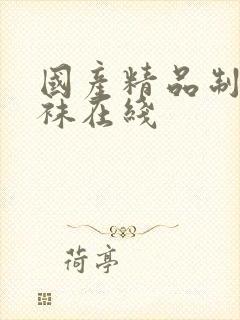 國產精品制
袜在綫
荷亭